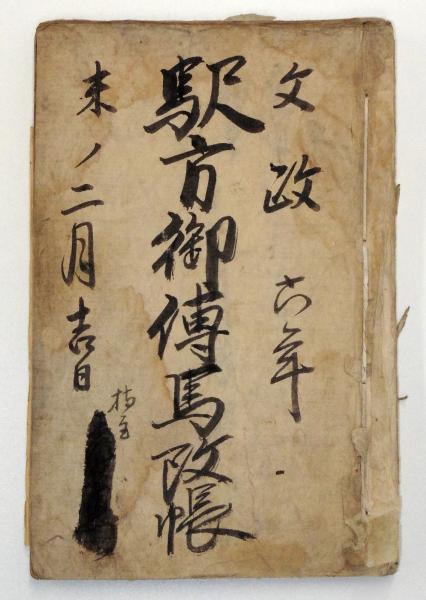 文政六年
駅方御傳馬改帳
未ノ二月吉日
持主